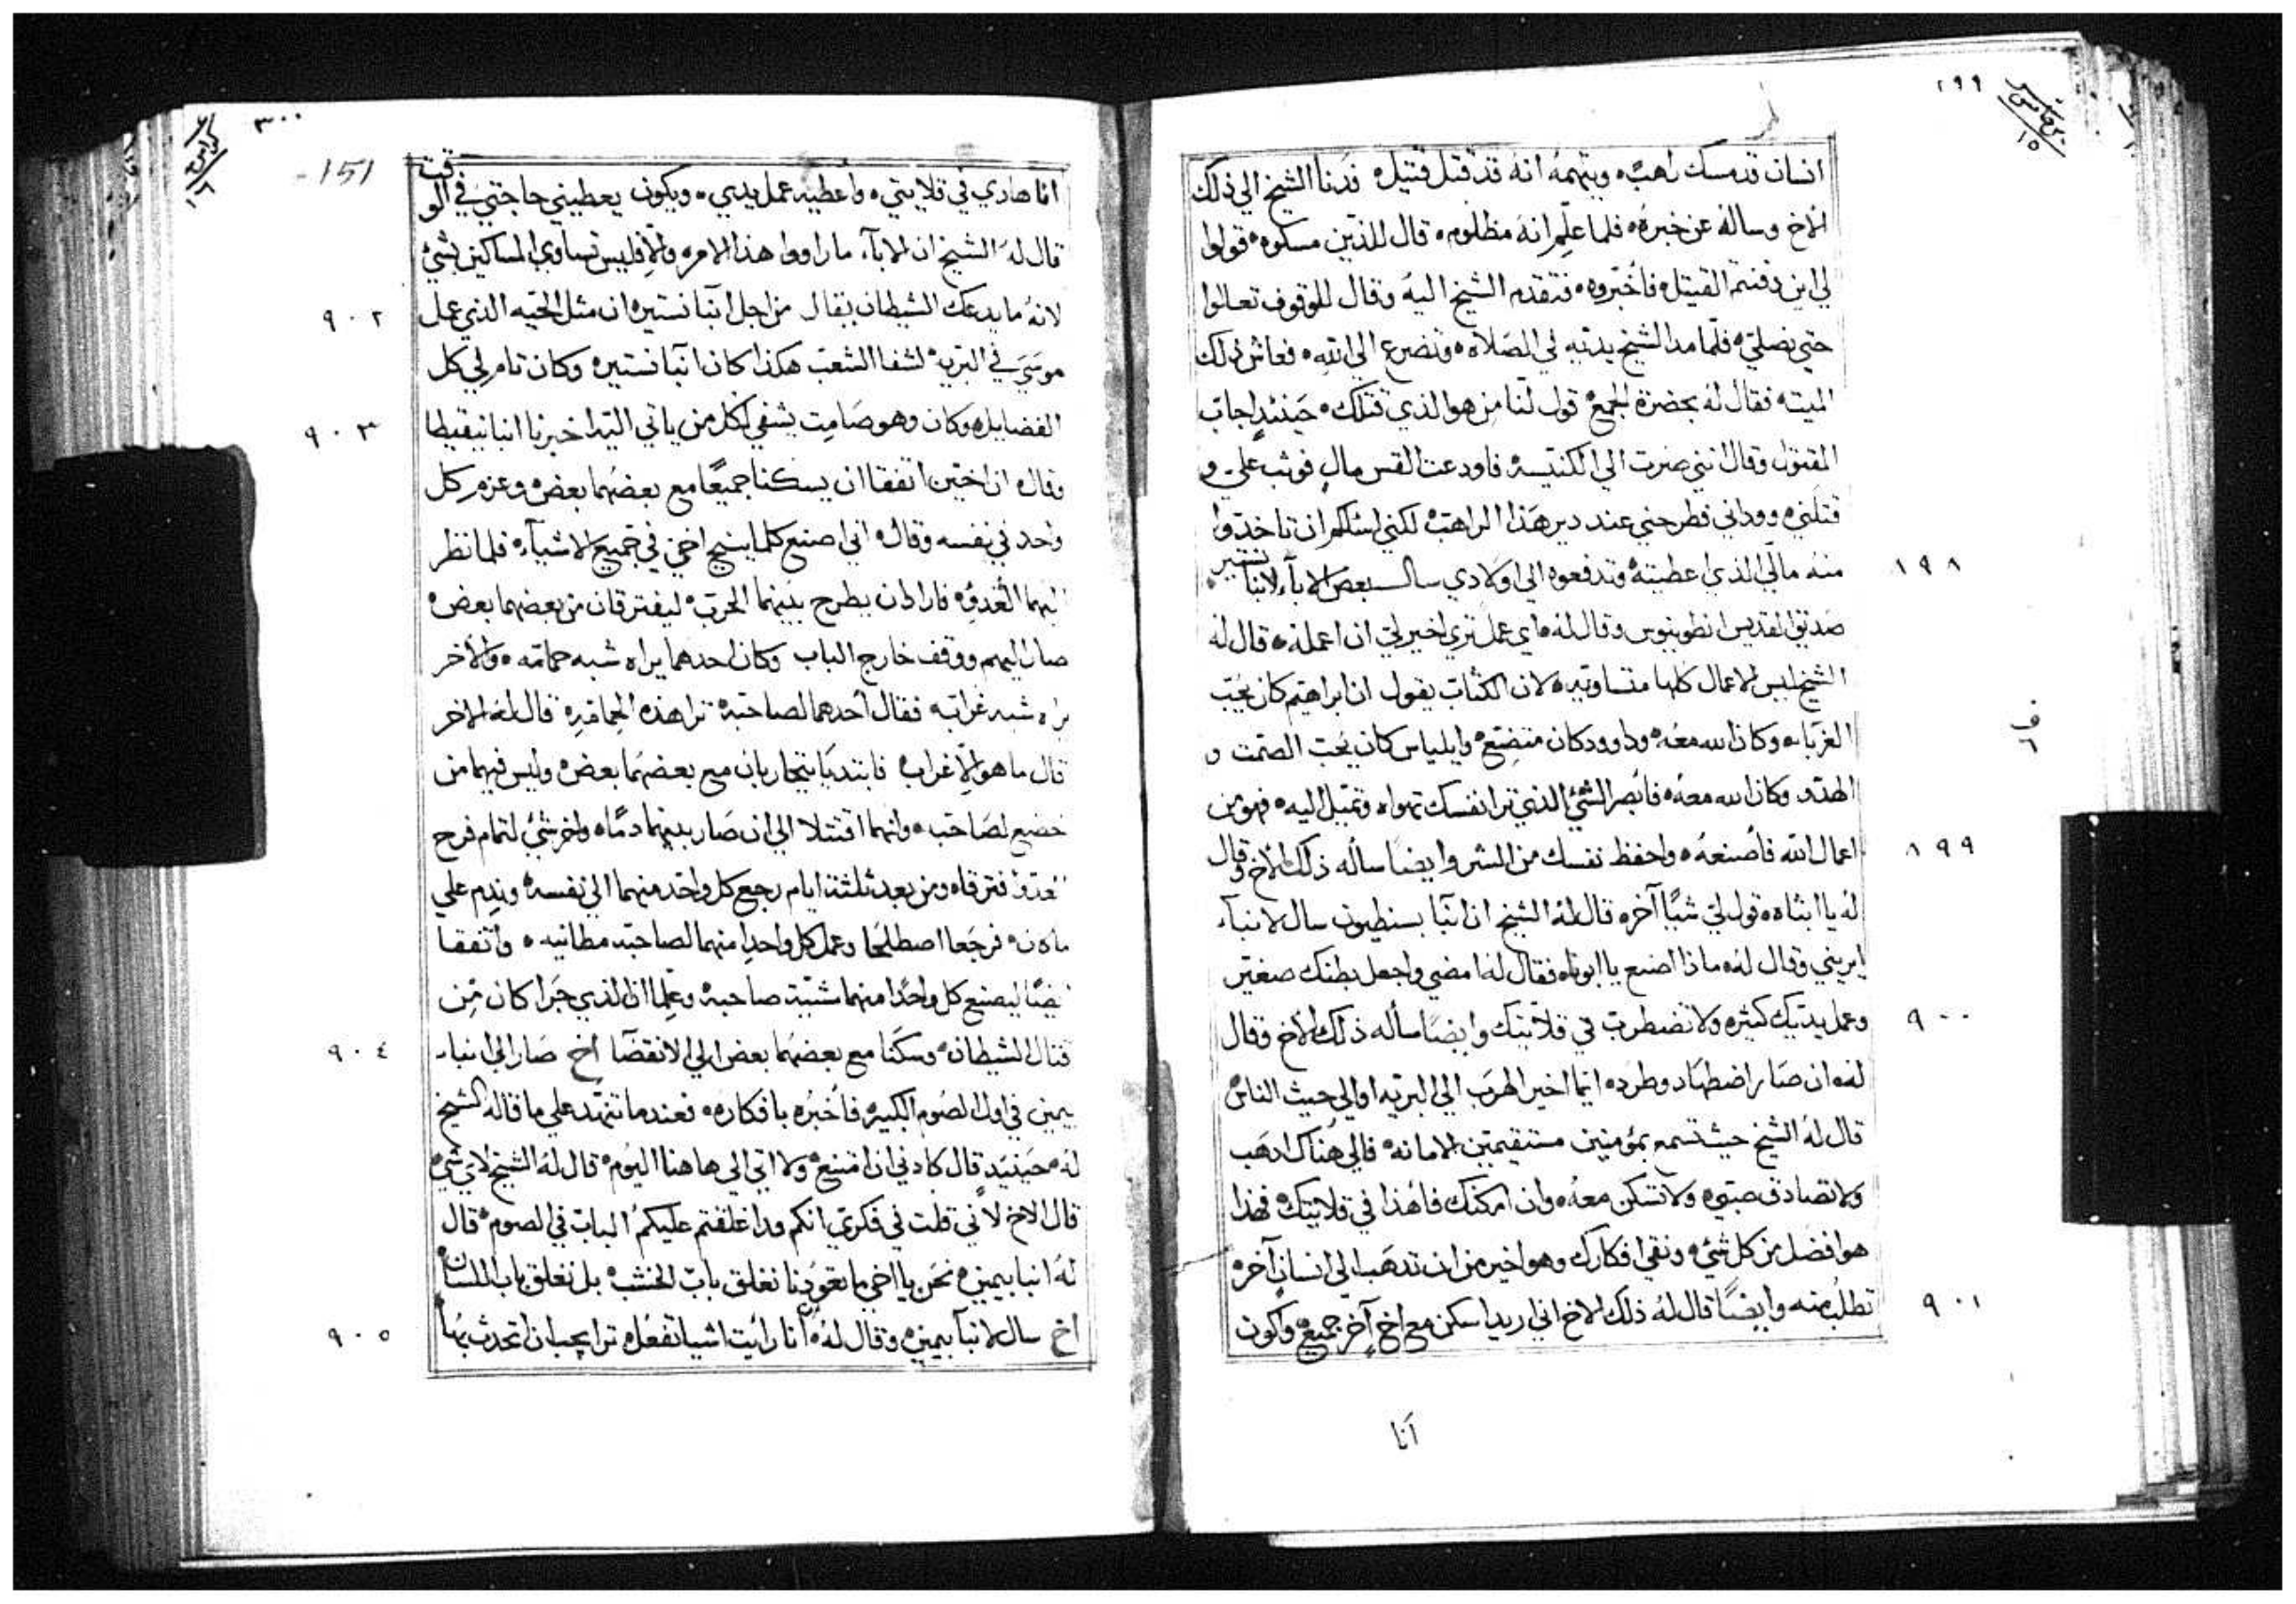 ٢٩٩
انسان قد مسك راهب ويتهمه انه قد قتل قتيل فدنا الشيخ الي ذلك
الاخ وساله عن خبره فلما علم انه مظلوم قال للذين مسكوه قولوا
لي اين دفنتم القتيل فاخبروه فتقدم الشيخ اليه وقال للوقوف تعالوا
حتي نصلي فلما مد الشيخ يديه في الصلاه وتضرع الي الله فعاش ذلك
الميت فقال له بحضرة الجمع قول لنا من هو الذي قتلك حينئد اجاب
المقتول وقال انني صرت الي الكنيسه فاودعت القس مال فوثب علي و
قتلني ووداني فطرحني عند دير هذا الراهب لكني اسلكم ان تاخدوا
٨٩٨
منه مالي الذي اعطيته وتدفعوه الي اولادي سال بعض الابآء لانبا نستير
صديق القديس انطونيوس وقال له اي عمل تري اخير لي ان اعمله قال له
الشيخ ليس الاعمال كلها متساويه لان الكتاب يقول ان ابراهيم كان يحب
الغربا وكان الله معه وداوود كان متضع وايلياس كان يحب الصمت و
الهدو وكان الله معه فابصر الشئ الذي ترا نفسك تهواه وتميل اليه فهو من
٨٩٩
اعمال الله فاصنعه واحفظ نفسك من الشر وايضًا ساله ذلك الاخ وقال
له يا ابتاه قول لي شيًا آخر قال له الشيخ ان انبا بسنطيون سال لانبآ
ايريني وقال له ماذا اصنع يا ابوناه فقال له امضي واجعل بطنك صغير
٩٠٠
وعمل يديك كثير ولا تضطرب في قلايتك وايضًا سأله ذلك الاخ وقال
له ان صار اضطهاد وطرد ايما اخير الهرب الي البريه او الي حيث الناس
قال له الشيخ حيث تسمع بمؤمنين مستقيمين الامانه فالي هناك ادهب
ولا تصادق صبي ولا تسكن معه وان امكنك فاهدا في قلايتك فهذا
هو افضل من كل شئ ونقي افكارك وهو اخير من ان تدهب الي انسان آخر
٩٠١
تطلب منه وايضًا قال له ذلك الاخ اني اريد اسكن مع اخ آخر جميع واكون
انا
٣٠٠
151
انا هادي في قلايتي واعطيه عمل يدي ويكون يعطيني حاجتي في الوقت
قال له الشيخ ان الابآء ما راووا هذا الامر والا فليس تساوي المساكين بشئ
٩٠٢
لانه ما يدعك الشيطان يقال من اجل انبا نستير ان مثل الحيه الذي عمل
موسي في البريه لشفا الشعب هكذا كان انبا نستير وكان تام في كل
٩٠٣
الفضايل وكان وهو صامت يشفي لكل من ياتي اليه اخبرنا انبا نيقيطا
وقال ان اخين اتفقا ان يسكنا جميعًا مع بعضهما بعض وعزم كل
واحد في نفسه وقال اني اصنع كلما ينيح اخي في جميع الاشيآء فلما نظر
اليهما العدو فاراد ان يطرح بينهما الحرب ليفترقان من بعضهما بعض
صار اليهم ووقف خارج الباب وكان احدهما يراه شبه حمامه والاخر
يراه شبه غرابه فقال احدهما لصاحبه ترا هذه الحمامه قال له الاخر
قال ما هو الا غراب فابتديا يتحاربان مع بعضهما بعض وليس فيهما من
خضع لصاحبه وانهما اقتتلا الي ان صار بينهما دمًا واخر شئ لتمام فرح
العدو فترقا ومن بعد ثلثة ايام رجع كل واحد منهما الي نفسه وندم علي
ما كان فرجعا اصطلحا وعمل كل واحد منهما لصاحبه مطانيه واتفقا
ايضًا ليصنع كل واحدًا منهما مشيّة صاحبه وعلما ان الذي جرا كان من
٩٠٤
قتال الشيطان وسكنا مع بعضهما بعض الي الانقضآ اخ صار الي انبا
بيمين في اول الصوم الكبير فاخبره بافكاره فعندما تنهد علي ما قاله الشيخ
له حينيد قال كادني ان امتنع ولا اتي الي هاهنا اليوم قال له الشيخ لاي شئ
قال الاخ لاني قلت في فكري انكم قد اغلقتم عليكم الباب في الصوم قال
له انبا بيمين نحن يا اخي ما تعودنا نغلق باب الخشب بل نغلق باب اللسان
٩٠٥
اخ سال لانبآ بيمين وقال له انا رايت اشيا تفعل ترا يجب ان اتحدث بها